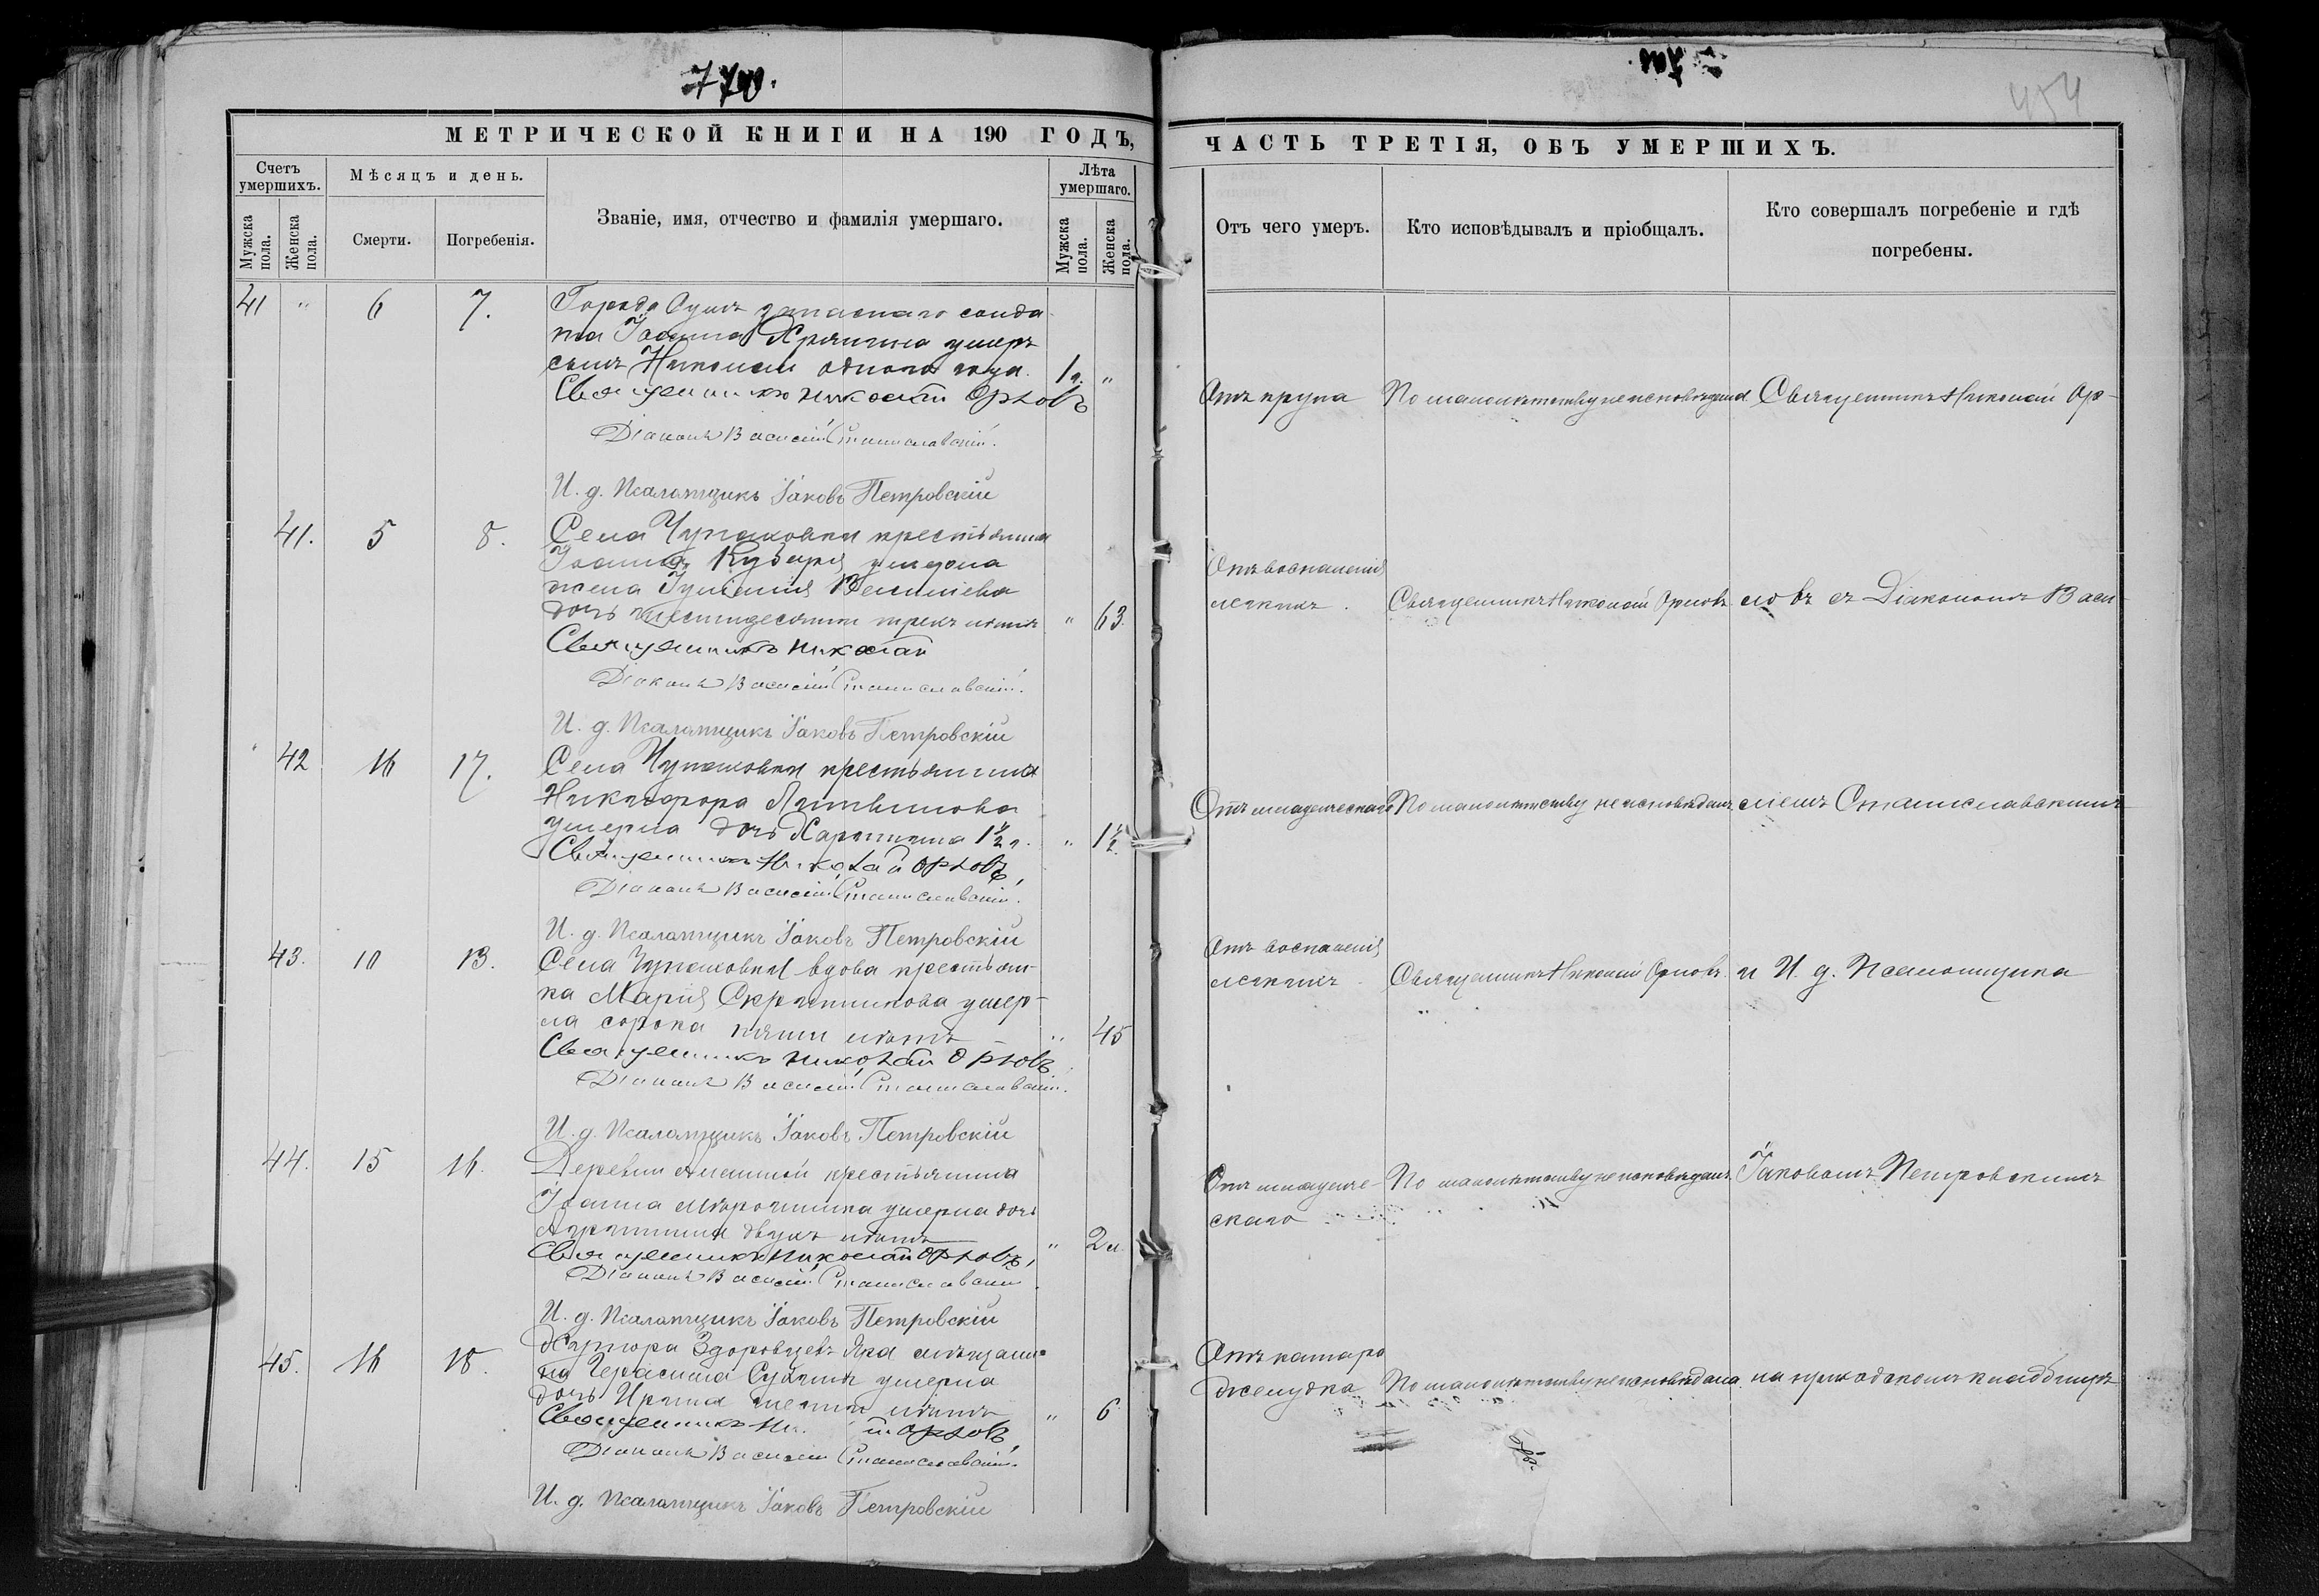 МЕТРИЧЕСКОЙ КНИГИ НА 190 ГОДЪ,
Счетъ умершихъ.
Мужска пола.
Женска пола.
Мѣсяцъ и день.
Смерти.
Погребенія.
Званіе, имя, отчество и фамилія умершаго.
Лѣта умершаго.
Мужска пола.
Женска пола.
41 " 6 7.
Города Сумъ запаснаго солда
та Іоанна умеръ
сынъ Николай одного года. 1 г. "
Священникъ Николай Орловъ
Діаконъ Василій Станиславскій.
И. д. Псаломщикъ Іаковъ Петровскій
41. 5 8.
Села Чупаховки крестьянина
Іоанна умерла
жена Іуліанія
дочь шестидесяти трехъ лѣтъ " 63.
Священникъ Николай
Діаконъ Василій Станиславскій.
И. д. Псаломщикъ Іаковъ Петровскій
" 42 16 17.
Села Чупаховки крестьянина
Никифора Литвинова
умерла дочь Харитина 1½ г. " 1½.
Священникъ Николай Орловъ,
Діаконъ Василій Станиславскій.
И. д. Псаломщикъ Іаковъ Петровскій
43. 10 13.
Села Чупаховки вдова крестьян-
ка Марія умер-
ла сорока пяти лѣтъ " 45
Священникъ Николай Орловъ
Діаконъ Василій Станиславскій.
И. д. Псаломщикъ Іаковъ Петровскій
44. 15 16.
Деревни крестьянина
Іоанна Мѣрошника умерла дочь
двухъ лѣтъ " 2 л.
Священникъ Николай Орловъ,
Діаконъ Василій Станиславскій
И. д. Псаломщикъ Іаковъ Петровскій
45. 16 18.
Хутора Яра мѣщани-
на Герасима умерла
дочь Ирина шести лѣтъ " 6
Священникъ Орловъ,
Діаконъ Василій Станиславскій.
И. д. Псаломщикъ Іаковъ Петровскій
454
ЧАСТЬ ТРЕТІЯ, ОБЪ УМЕРШИХЪ.
Отъ чего умеръ.
Кто исповѣдывалъ и пріобщалъ.
Кто совершалъ погребеніе и гдѣ
погребены.
Отъ крупа
По малолѣтству не исповѣданъ
Священникъ Николай Ор-
Отъ воспаленія
легкихъ.
Священникъ Николай Орловъ
ловъ съ Діакономъ Васи-
Отъ младенческаго
По малолѣтству не исповѣдана
ліемъ Станиславскимъ
Отъ воспаленія
легкихъ
Священникъ Николай Орловъ
и И. д. Псаломщика
Отъ младенче-
скаго
По малолѣтству не исповѣдана
Іаковомъ Петровскимъ
Отъ катара
желудка
По малолѣтству не исповѣдана
на приходскомъ кладбищѣ